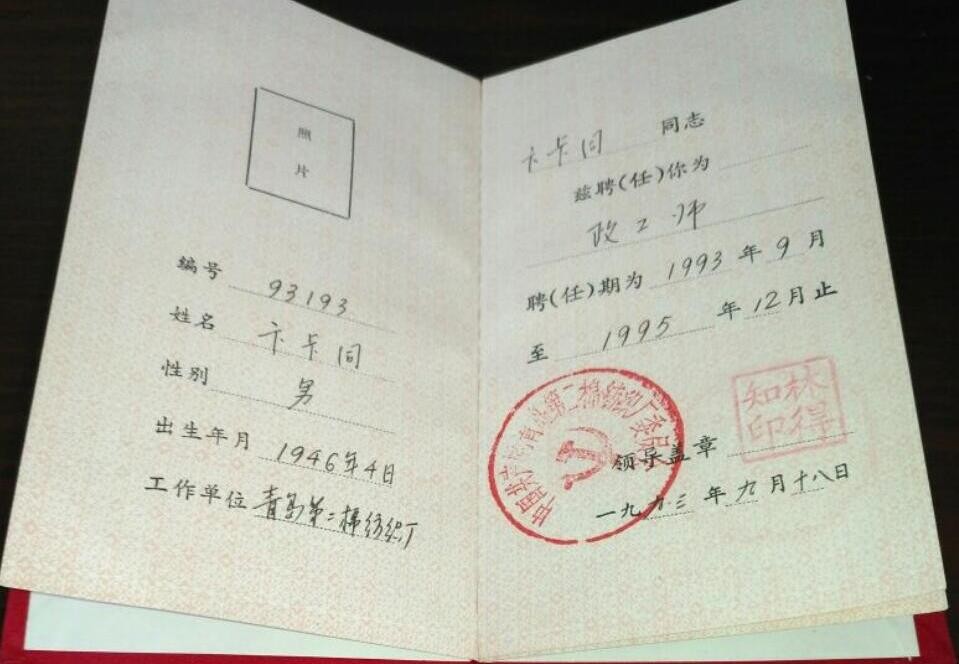 照
片
编号 93193
姓名 卞卡同
性别 男
出生年月 1946年4日
工作单位 青岛第二棉纺织厂
卞卡同 同志
兹聘(任)你为
政工师
聘(任)期为 1993 年 9 月
至 1995 年 12 月止
中国共产党青岛第二棉纺织厂委员会
林得
知印
领导盖章
一九九三 年 九 月 十八 日